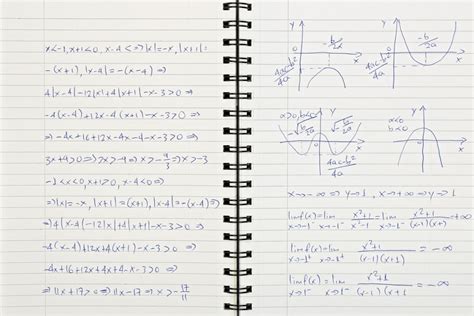 x<-1, x+1<0, x-4<⇒|x|=-x, |x+1|=
-(x+1), |x-4|=-(x-4)⇒
4|x-4|-12|x|+4|x+1|-x-3>0⇒
-4(x-4)+12x-4(x+1)-x-3>0⇒
⇒-4x+16+12x-4x-4-x-3>0⇒
3x+9>0⇒
⇒x>-3
-1<x<0, x+1>0, x-4<0⇒
⇒|x|=-x, |x+1|=(x+1), |x-4|=-(x-4)⇒
⇒4|x-4|-12|x|+4|x+1|-x-3>0⇒
-4(x-4)+12x+4(x+1)-x-3>0⇒
-4x+16+12x+4x+4-x-3>0⇒
⇒11x+17>0⇒11x-17⇒x>-17/11
y
-b/2a
0
x
4ac-b²/4a
y
-b/2a
0
x
4ac-b²/4a
α>0, b<0
y
0
x
4ac-b²/4a
α<0
b<0
y
x
x→-∞⇒y→1, x→+∞⇒y→1
limf(x)=lim x²+1/(x-1)(x+1)=+∞
x→-1⁻ x→-1⁻
limf(x)=lim x²+1/(x-1)(x+1)=-∞
x→-1⁺ x→-1⁺
limf(x)=lim x²+1/(x-1)(x+1)=-∞
x→1⁻ x→1⁻